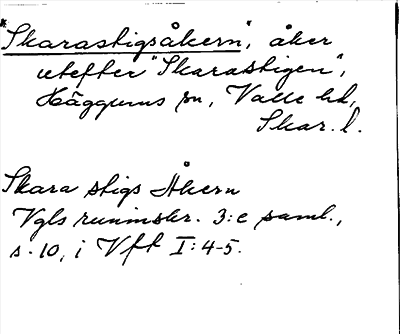 "Skarastigsåkern", åker
utefter "Skarastigen",
Häggums sn, Valle hd,
Skar. l.
Skara stigs Åkern
Vgls runinskr. 3:e saml.,
s. 10, i Vft I:4-5.